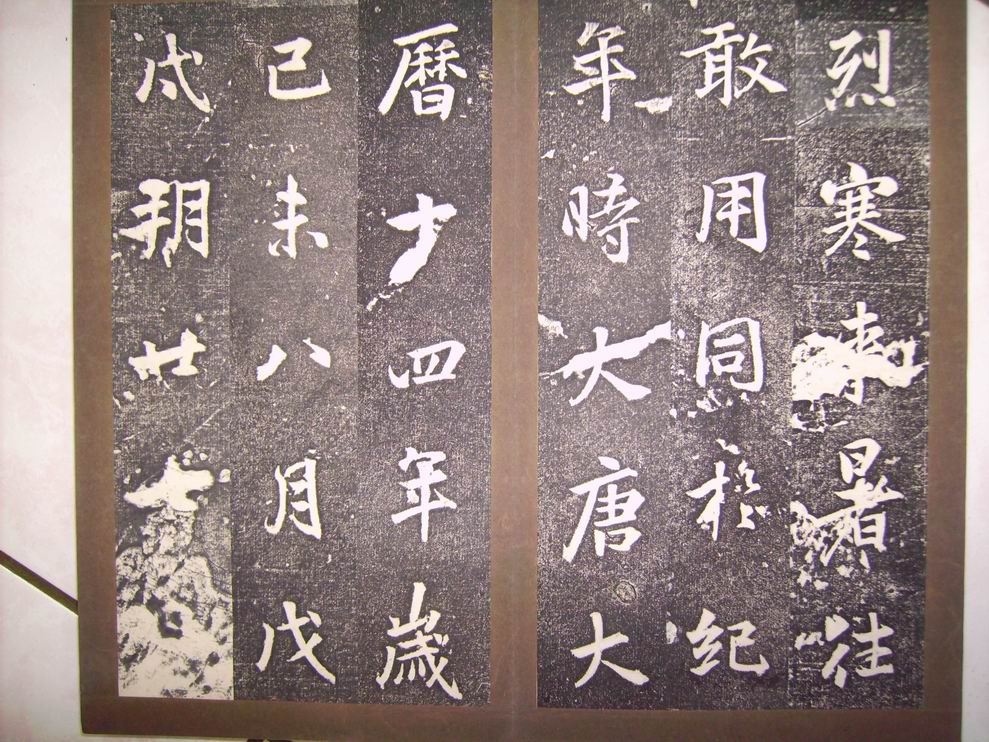 烈寒来暑往
敢用同扵紀
年時大唐大
曆十四年歲
己未八月戊
戌朔廿